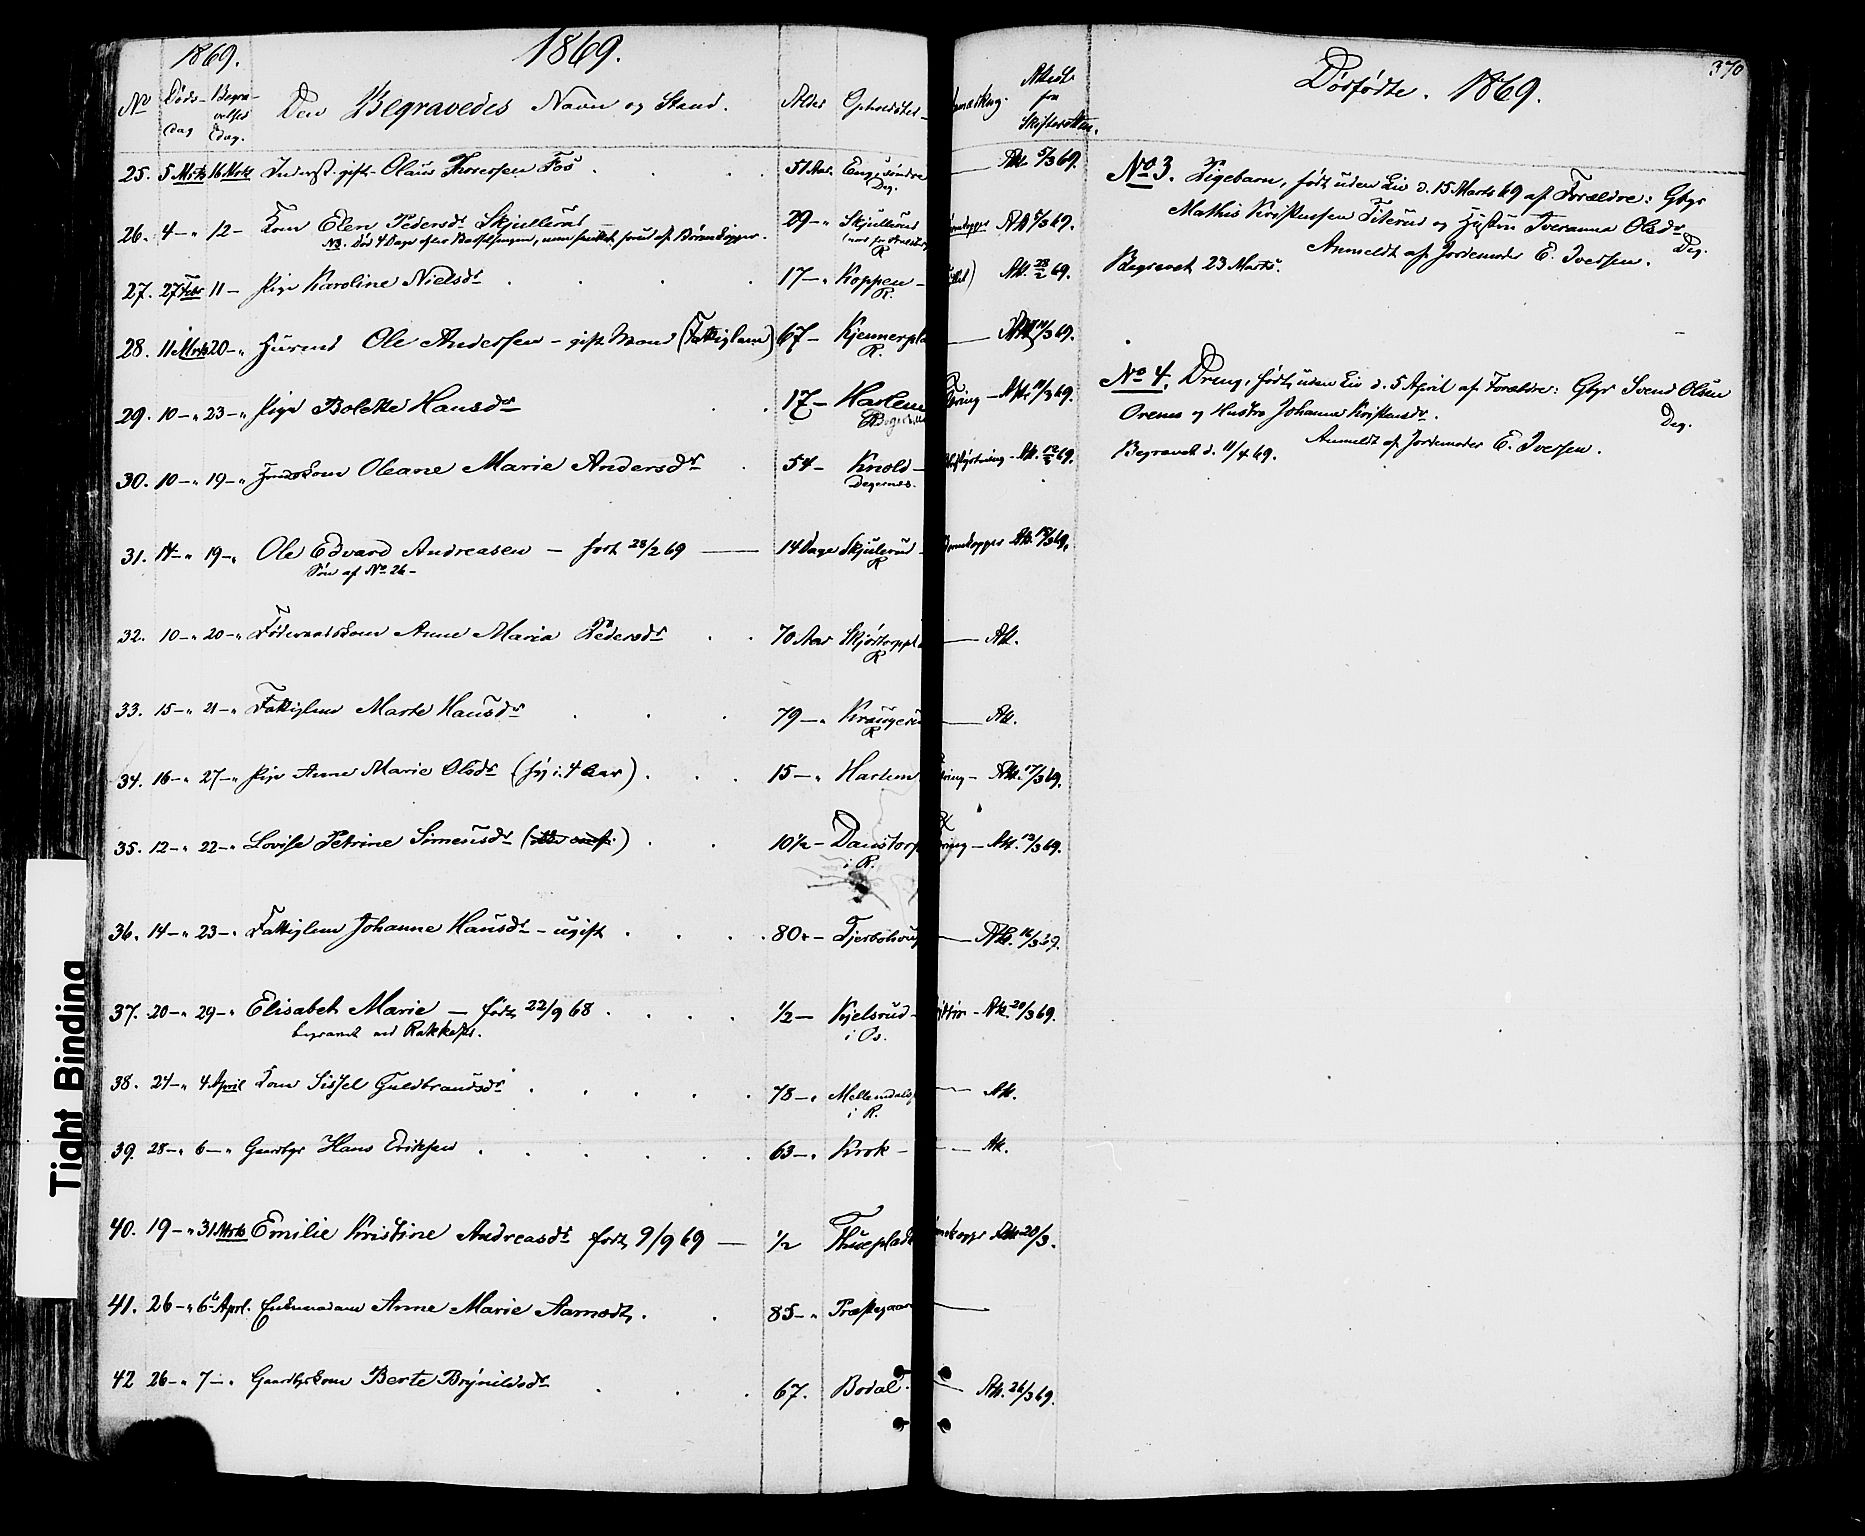 1869.
1869.
No Døds- dag Begra- velses dag. Den Begravedes Navn og Stand. Alder Opholdsted
25. 5 Mrts 16 Mrts Inderst. gift. Olaus Thoresen Fos 51 Aar. Engesøndre
Deg.
26. 4 - " 12 - Kone Elen Pedersdr Skjullerud 29 - " Skjullerud
NB. død 4 Dage efter Barfselsengen,
R
27. 27 Febr 11 - Pige Karoline Nielsdr 17 - " Koppen -
R.
28. 11 Mrts 20 - " Huusmd Ole Andersen - gift Mand (Fattiglem) 67 - Kjennerpl
R.
29. 10 - " 23 - " Pige Bolette Hansdr 17 - Haslem
30. 10 - " 19 - " Oleane Marie Andersdr 54 - Knold -
Degernes.
31. 14 - " 19 - " Ole Edvard Andreasen - født 28/2 69 14 Dage Skjulerud
Søn af No 26 -
R
32. 10 - " 20 - " Føderaadskone Anne Maria Pedersdr 70 Aar Skjøltorppl
R
33. 15 - " 21 - " Fattiglem Marte Hansdr 79 - "
R
34. 16 - " 27 - " Pige Anne Marie Olsdr (syg i 4 Aar) 15 - " Haslem
35. 12 - " 22 - " Lovise Petrine Simensdr 10½ - Danstorp
i R.
36. 14 - " 23 - " Fattiglem Johanne Hansdr - ugift 80 -
37. 20 - " 29 - " Elisabet Marie - født 22/9 68 1/2 - Kjelsrud -
begravet ved Rakkestd.
i Os.
38. 24 - " 4 April Kone Sissel Guldbrandsdr 78 - " Mellemdals
i R.
39. 28 - " 6 - " Gaardbgr Hans Eriksen 63 - " Krok -
40. 19 - " 31 Mrts Emilie Kristine Andreasdr født 9/9 69 - 1/2
41. 26 - " 6 Aprl. Enkemadam Anne Marie Aamodt 85 - " Præstegaar
42 26 - " 7 - " Gaardbrkone Berte Brynildsdr 67. Bodal
Attest fra Skifteretten.
Att. 5/3 69.
Att. 5/3 69.
Att. 28/2 69.
Att. 11/3 69.
ring - Att. 11/3 69.
Att. 12/3 69.
Att. 15/3 69.
Att.
Att.
ring - Att. 17/3 69.
ring - Att. 13/3 69.
Att. 16/3 69.
Att. 20/3 69.
Att.
Att.
Att. 20/3.
Att. 26/3 69.
370
Dødfødte. 1869.
No 3. Pigebarn, født uden Liv d. 15 Marts 69 af Forældre: Gbgr
Mathis Kristensen Titerud og Hustru Iveranna Olsdr
Deg.
Anmeldt af Jordemoder E. Iversen.
Begravet 23 Marts.
No 4. Dreng, født uden Liv d. 5 April af Forældre: Gbgr Svend Olsen
Orems og Hustru Johanne Kristensdr.
Deg.
Anmeldt af Jordemoder E. Iversen.
Begravet d. 11/4 69.
Tight Binding